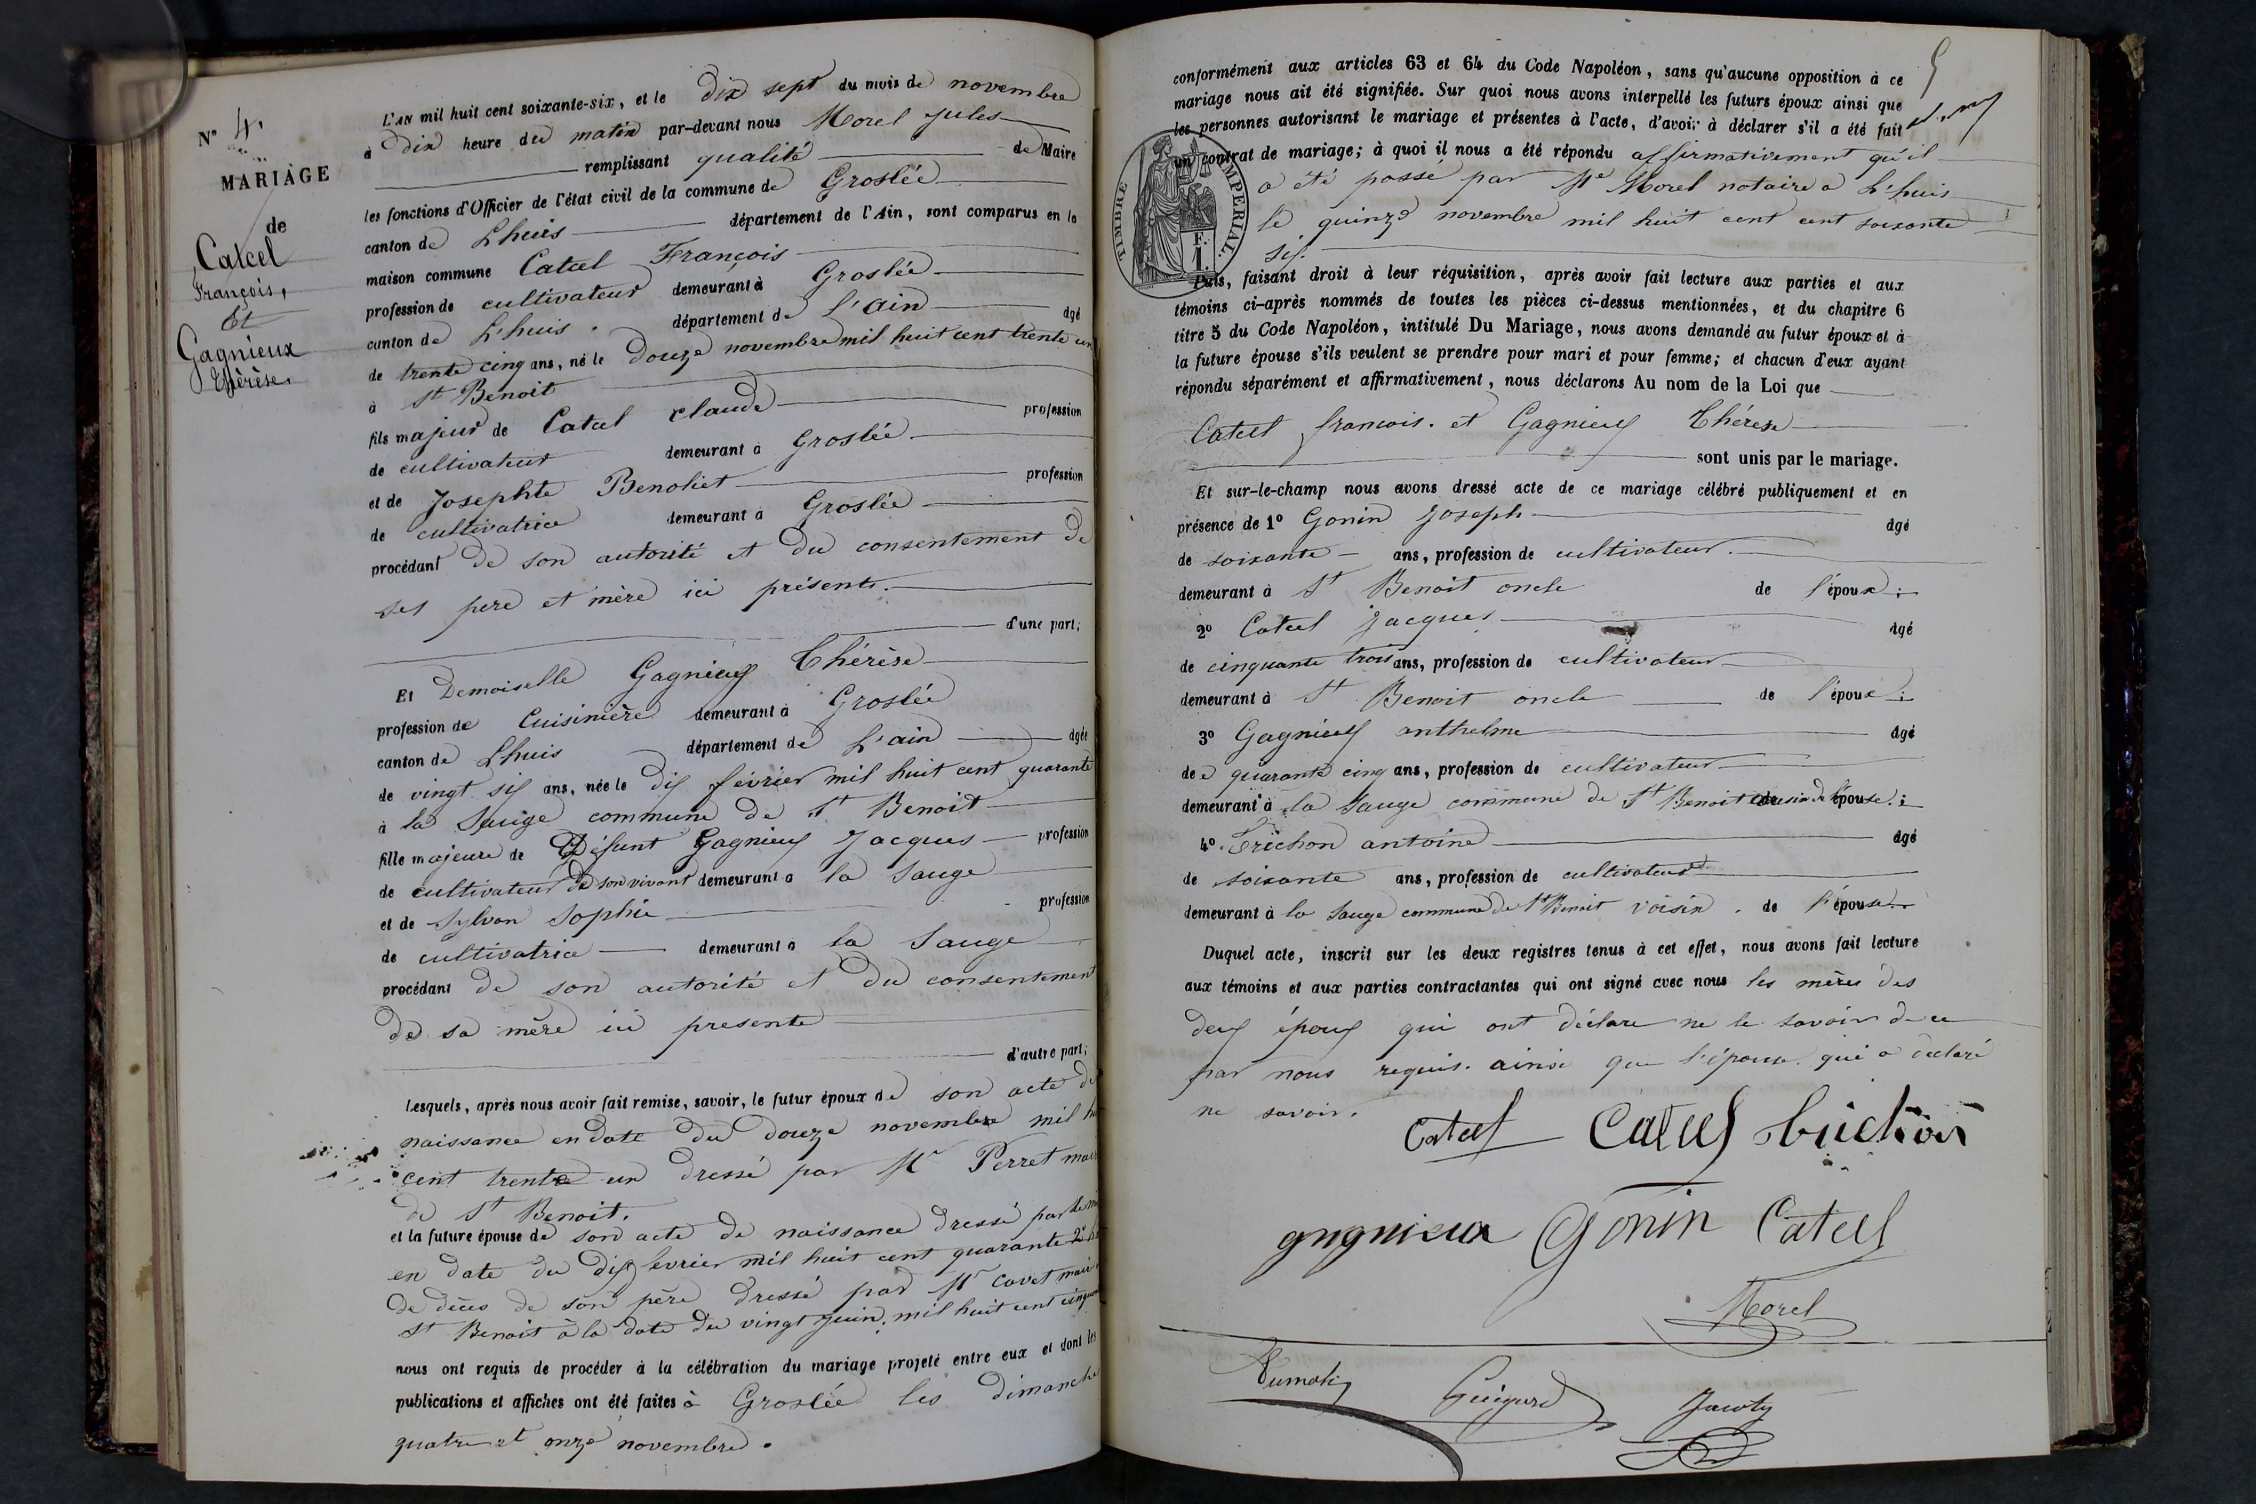 N° 4.
MARIAGE
de
Catcel
François,
Et
Gagnieux
Thérèse.
L'AN mil huit cent soixante-six, et le dix sept du mois de novembre
à dix heure du matin par-devant nous Morel Jules
remplissant qualité de Maire
les fonctions d'Officier de l'état civil de la commune de Groslée
canton de Lhuis département de l'Ain, sont comparus en la
maison commune Catcel François
profession de cultivateur demeurant à Groslée
canton de L'huis. département de L'ain âgé
de trente cinq ans, né le douze novembre mil huit cent trente un
à St Benoit
fils majeur de Catcel claude profession
de cultivateur demeurant à Groslée
et de Josephte Benoliet profession
de cultivatrice demeurant à Groslée
procédant de son autorité et du consentement de
ses pere et mère ici présents.
d'une part;
Et Demoiselle Gagnieux Thérèse
profession de Cuisinière demeurant à Groslée
canton de Lhuis département de L'ain âgée
de vingt six ans, née le dix février mil huit cent quarante
à la Sauge commune de St Benoit
fille majeure de Défunt Gagnieux Jacques profession
de cultivateur de son vivant demeurant à la Sauge
et de Sylvan Sophie profession
de cultivatrice demeurant à la Sauge
procédant de son autorité et du consentement
de sa mère ici presente
d'autre part;
Lesquels, après nous avoir fait remise, savoir, le futur époux de son acte de
naissance en date du douze novembre mil
cent trente un dressé par Mr Perret
de St Benoit.
et la future épouse de son acte de naissance dressé par
en date du dix fevrier mil huit cent quarante 2°
de décès de son père dressé par Mr Cavet
St Benoit à la date du vingt juin. mil huit cent
nous ont requis de procéder à la célébration du mariage projeté entre eux et dont les
publications et affiches ont été faites à Groslée les dimanches
quatre et onze novembre.
conformément aux articles 63 et 64 du Code Napoléon, sans qu'aucune opposition à ce
mariage nous ait été signifiée. Sur quoi nous avons interpellé les futurs époux ainsi que
les personnes autorisant le mariage et présentes à l'acte, d'avoir à déclarer s'il a été fait
un contrat de mariage; à quoi il nous a été répondu affirmativement qu'il
a été passé par Me Morel notaire a L'huis
le quinze novembre mil huit cent cent soixante
six.
TIMBRE IMPERIAL.
F.
1.
Puis, faisant droit à leur réquisition, après avoir fait lecture aux parties et aux
témoins ci-après nommés de toutes les pièces ci-dessus mentionnées, et du chapitre 6
titre 5 du Code Napoléon, intitulé Du Mariage, nous avons demandé au futur époux et à
la future épouse s'ils veulent se prendre pour mari et pour femme; et chacun d'eux ayant
répondu séparément et affirmativement, nous déclarons Au nom de la Loi que
Catcel francois. et Gagnieux Thérèse
sont unis par le mariage.
Et sur-le-champ nous avons dressé acte de ce mariage célébré publiquement et en
présence de 1° Gonin Joseph âgé
de soixante ans, profession de cultivateur.
demeurant à St Benoit oncle de l'époux;
2° Catcel Jacques âgé
de cinquante trois ans, profession de cultivateur
demeurant à St Benoit oncle de l'époux;
3° Gagnieux anthelme âgé
de quarante cinq ans, profession de cultivateur
demeurant à la Sauge commune de St Benoit cousin de l'épouse;
4° Trichon antoine âgé
de soixante ans, profession de cultivateur
demeurant à la Sauge commune de St Benoit voisin. de l'épouse.
Duquel acte, inscrit sur les deux registres tenus à cet effet, nous avons fait lecture
aux témoins et aux parties contractantes qui ont signé avec nous les mères des
deux époux qui ont déclare ne le savoir de ce
par nous requis. ainsi que l'épouse. qui a déclaré
ne savoir.
Catcel Catcel trichon
gngnieux Gonin Catcel
Morel
Guigard